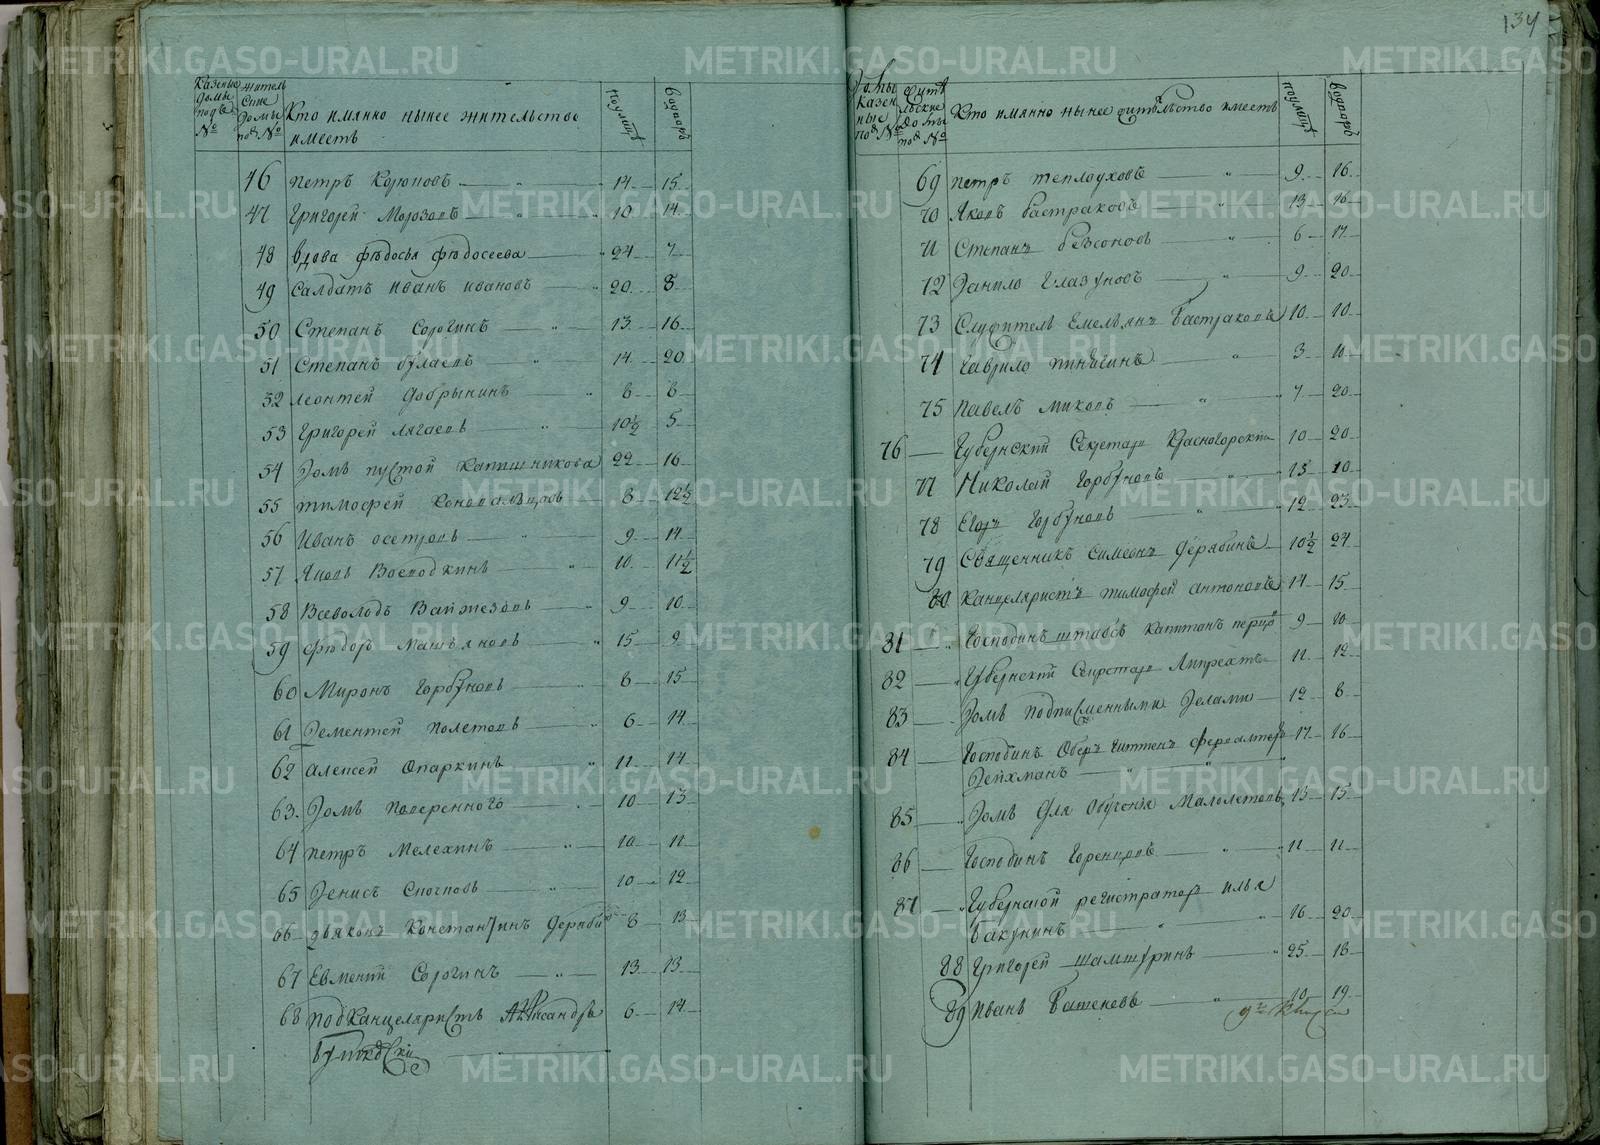 134
Казеные домы подъ №
жительские домы подъ №
Кто имянно нынее жительство имеетъ
поулицѣ
водворъ
46 петръ Корюковъ — " — 14 — 15
47 Григорей Морозовъ — " 10 — 14
48 вдова федосья федосеева — " 24 — 7
49 Салдатъ иванъ ивановъ — " 20 — 8
50 Степанъ Сорогинъ — " — 13 — 16
51 Степанъ булаевъ — " — 14 — 20
52 леонтей добрынинъ — " 8 — 8
53 Григорей лягаевъ — " — 10½ 5
54 Домъ пустой капишникова 22 — 16
55 тимофей Коновальцовъ — 8 — 12½
56 Иванъ осетровъ — " — 9 — 14
57 Яковъ Воеводкинъ — " 10 — 11½
58 Всеволодъ — " 9 — 10
59 федоръ — " 15 — 9
60 Миронъ Горбуновъ — " 8 — 15
61 Дементей полетовъ — " 6 — 14
62 Алексей Опаркинъ — " 11 — 14
63 Домъ 10 — 13
64 петръ Мелехинъ — " — 10 — 11
65 Денисъ — " — 10 — 12
66 дьяконъ Константинъ 8 — 13
67 Евмений Сорогинъ — " — 13 — 13
68 подканцеляристъ Александръ 6 — 14
Домы казенные подъ №
жительские домы подъ №
Кто имянно нынее жительство имеетъ
поулицѣ
водворъ
69 петръ теплоуховъ — " — 9 — 16
70 Яковъ бастраковъ — " 13 — 16
71 Степанъ безсоновъ — " — 6 — 17
72 Данило Глазуновъ — " — 9 — 20
73 Служитель Емельянъ бастраковъ 10 — 10
74 Гаврило пинягинъ — " — 3 — 10
75 павелъ миковъ — " — 7 — 20
76 — Губернский Секретарь Красногорский 10 — 20
77 Николай Горбуновъ — " — 15 — 10
78 Егоръ Горбуновъ — " — 12 — 23
79 Священникъ Симеонъ Дерябинъ — 10½ 24
80 Канцеляристъ тимофей антоновъ 14 — 15
81 Господинъ штабсъ капитанъ 9 — 10
82 — Губернский Секретарь Липрехтъ 11 — 12
83 — Домъ подписменными делами — 12 — 8
84 — Господинъ Оберъ Гиттенъ фервалтеръ 17 — 16
Дейхманъ — " —
85 — Домъ для обучения малолетовъ 13 — 15
86 — Господинъ — " 11 — 11
87 — Губернской регистраторъ илья
бакунинъ — " — " 16 — 20
88 Григорей шамшуринъ — " 25 — 18
89 Иванъ батеневъ — " — 10 — 19